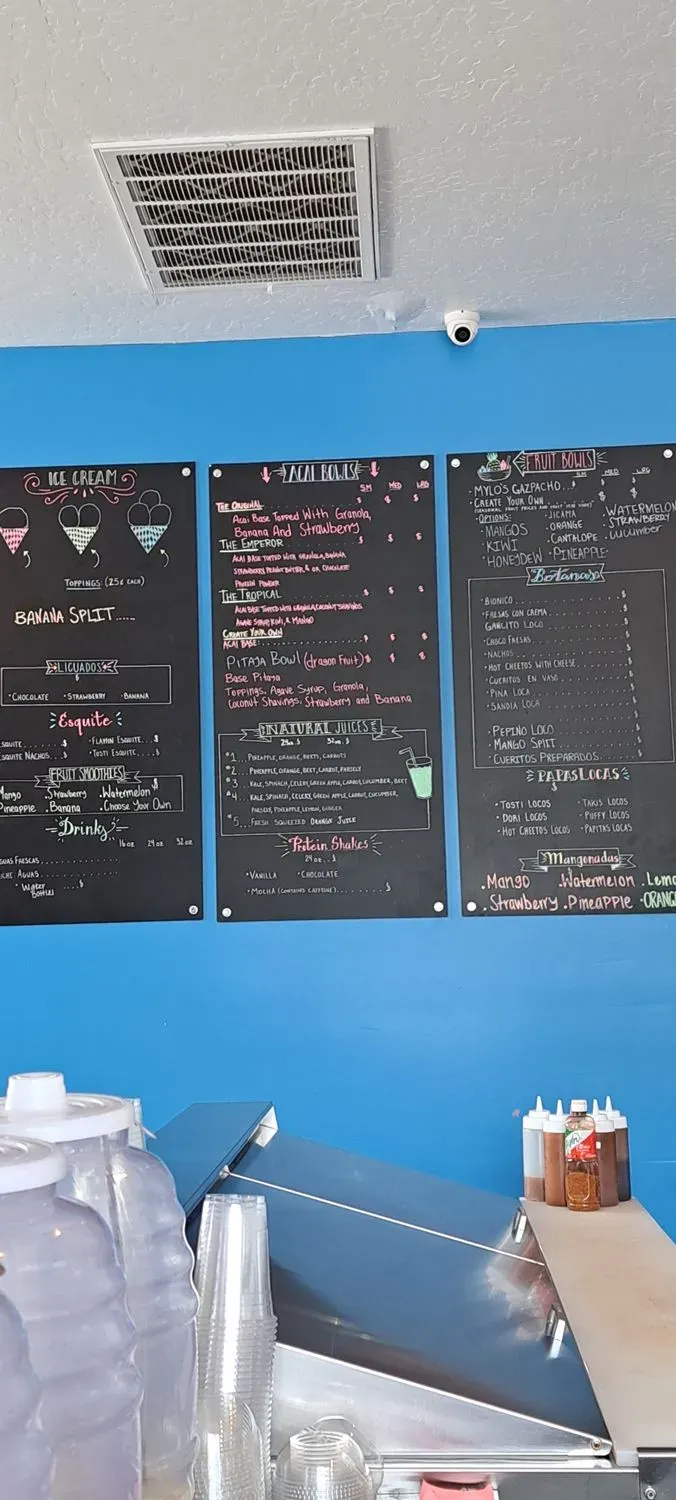 ICE CREAM
TOPPINGS: (25¢ EACH)
BANANA SPLIT.....
LICUADOS
$
• CHOCOLATE • STRAWBERRY • BANANA
Esquite
$ • FLAMIN ESQUITE...$
NACHOS..$ • TOSTI ESQUITE....$
FRUIT SMOOTHIES $
.Strawberry .Watermelon
.Banana .Choose Your Own
Drinks
16 oz 24 oz 32 oz
FRESCAS
AGUAS
• Water Bottles ....$
ACAI BOWLS
SM MED LRG
THE ORIGINAL $ $ $
Acai Base Topped With Granola,
Banana And Strawberry
THE EMPEROR $ $ $
ACAI BASE TOPPED WITH GRANOLA, BANANA
STRAWBERRY, PEANUT BUTTER & OR CHOCOLATE
PROTEIN POWDER
THE TROPICAL
ACAI BASE TOPPED WITH GRANOLA, COCONUT SHAVINGS,
AGAVE SYRUP, KIWI, & MANGO
CREATE YOUR OWN
ACAI BASE $ $ $
PITAJA Bowl (dragon Fruit) $ $ $
Base Pitaja
Toppings. Agave Syrup, Granola,
Coconut Shavings, Strawberry and Banana
NATURAL JUICES
24oz..$ 32oz..$
#1... PINEAPPLE, ORANGE, BEETS, CARROTS
#2... PINEAPPLE, ORANGE, BEET, CARROT, PARSLEY
#3... KALE, SPINACH, CELERY, GREEN APPLE, CARROT, CUCUMBER, BEET
#4... KALE, SPINACH, CELERY, GREEN APPLE, CARROT, CUCUMBER,
PARSLEY, PINEAPPLE, LEMON, GINGER
#5... FRESH SQUEEZED ORANGE JUICE
Protein Shakes
24 oz... $
• VANILLA • CHOCOLATE
• MOCHA (CONTAINS CAFFEINE)..........$
FRUIT BOWLS
SM MED LRG
• MYLO'S GAZPACHO...$ $ $
• CREATE YOUR OWN $ $
• OPTIONS: • JICAMA .WATERMELON
• MANGOS • ORANGE .STRAWBERRY
• KIWI • CANTALOPE • CUCUMBER
• HONEYDEW • PINEAPPLE
Botanas
• BIONICO $
• FRESAS CON CREMA $
GANCITO LOCO $
• CHOCO FRESAS $
• NACHOS $
• HOT CHEETOS WITH CHEESE $
• CUERITOS EN VASO $
• PINA LOCA $
• SANDIA LOCA $
• PEPINO LOCO $
• MANGO SPLIT $
• CUERITOS PREPARADOS $
PAPAS LOCAS
$
• TOSTI LOCOS • TAKIS LOCOS
• DORI LOCOS • PUFFY LOCOS
• HOT CHEETOS LOCOS • PAPITAS LOCAS
Mangonadas
.Mango .Watermelon
.Strawberry .Pineapple